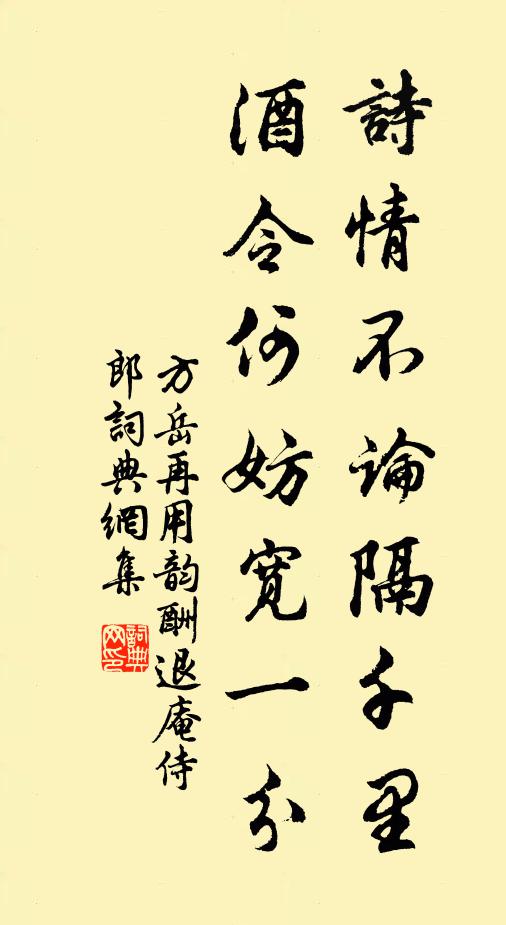 詩情不論隔千里
酒令何妨寬一分
方岳再用韵酬退庵侍
郎詞典網集
詞典網印